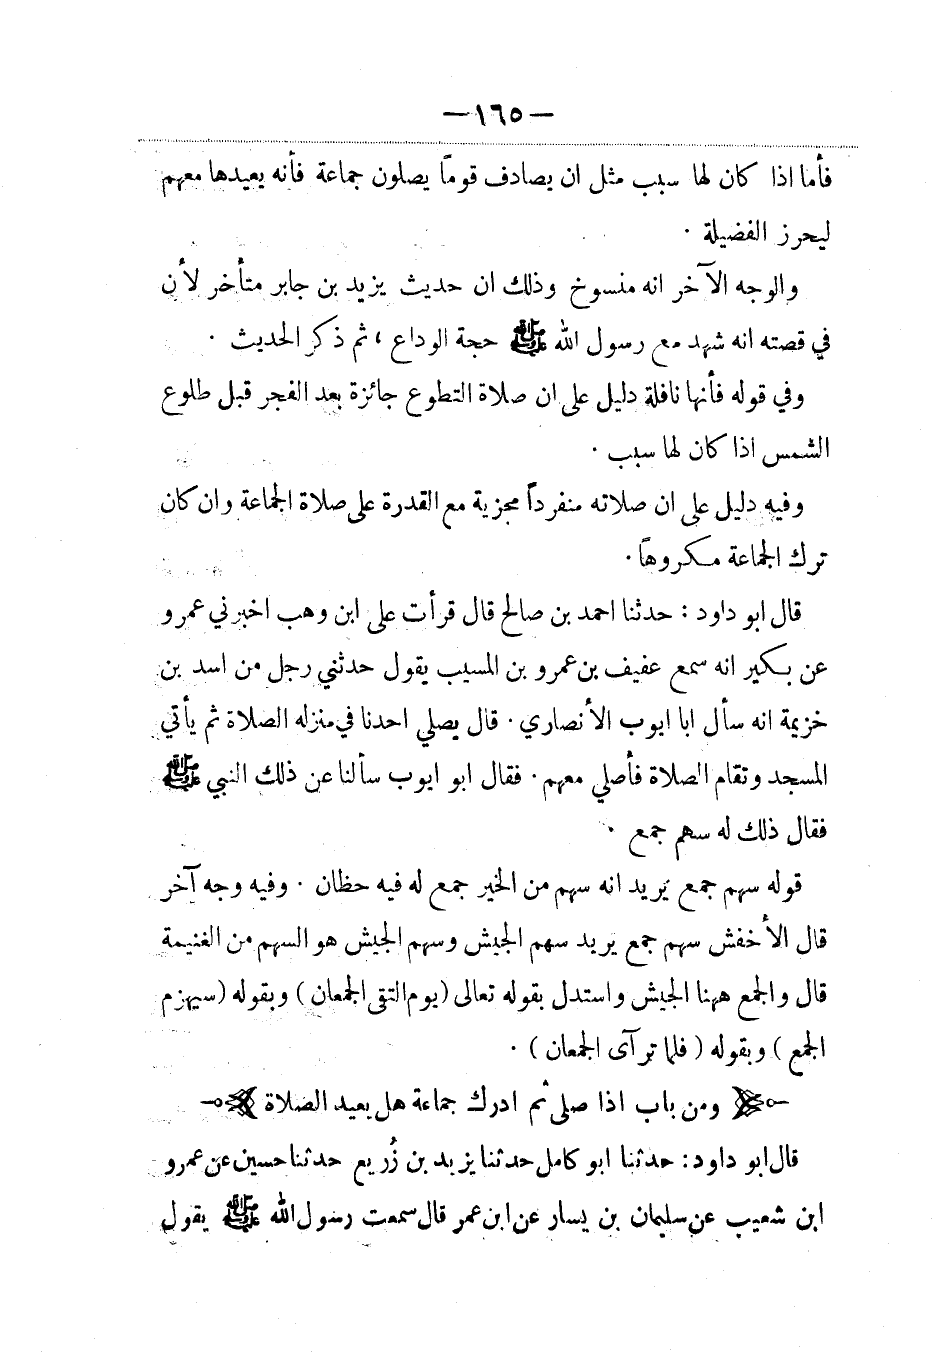 — ١٦٥ —
فأما اذا كان لها سبب مثل ان يصادف قوماً يصلون جماعة فأنه يعيدها معهم
ليحرز الفضيلة ٠
والوجه الآخر انه منسوخ وذلك ان حديث يزيد بن جابر متأخر لأن
في قصته انه شهد مع رسول الله ﷺ حجة الوداع ، ثم ذكر الحديث ٠
وفي قوله فأنها نافلة دليل على ان صلاة التطوع جائزة بعد الفجر قبل طلوع
الشمس اذا كان لها سبب ٠
وفيه دليل على ان صلاته منفرداً مجزية مع القدرة على صلاة الجماعة وان كان
ترك الجماعة مكروهاً ٠
قال ابو داود : حدثنا احمد بن صالح قال قرأت على ابن وهب اخبرني عمرو
عن بكير انه سمع عفيف بن عمرو بن المسيب يقول حدثني رجل من اسد بن
خزيمة انه سأل ابا ايوب الأنصاري ٠ قال يصلي احدنا في منزله الصلاة ثم يأتي
المسجد وتقام الصلاة فأصلي معهم ٠ فقال ابو ايوب سألنا عن ذلك النبي ﷺ
فقال ذلك له سهم جمع ٠
قوله سهم جمع يريد انه سهم من الخير جمع له فيه حظان ٠ وفيه وجه آخر
قال الأخفش سهم جمع يريد سهم الجيش وسهم الجيش هو السهم من الغنيمة
قال والجمع ههنا الجيش واستدل بقوله تعالى (يوم التقى الجمعان ) وبقوله (سيهزم
الجمع ) وبقوله ( فلما ترآى الجمعان ) ٠
ومن باب اذا صلى ثم ادرك جماعة هل يعيد الصلاة
قال ابو داود : حدثنا ابو كامل حدثنا يزيد بن زُريع حدثنا حسين عن عمرو
ابن شعيب عن سليمان بن يسار عن ابن عمر قال سمعت رسول الله ﷺ يقول